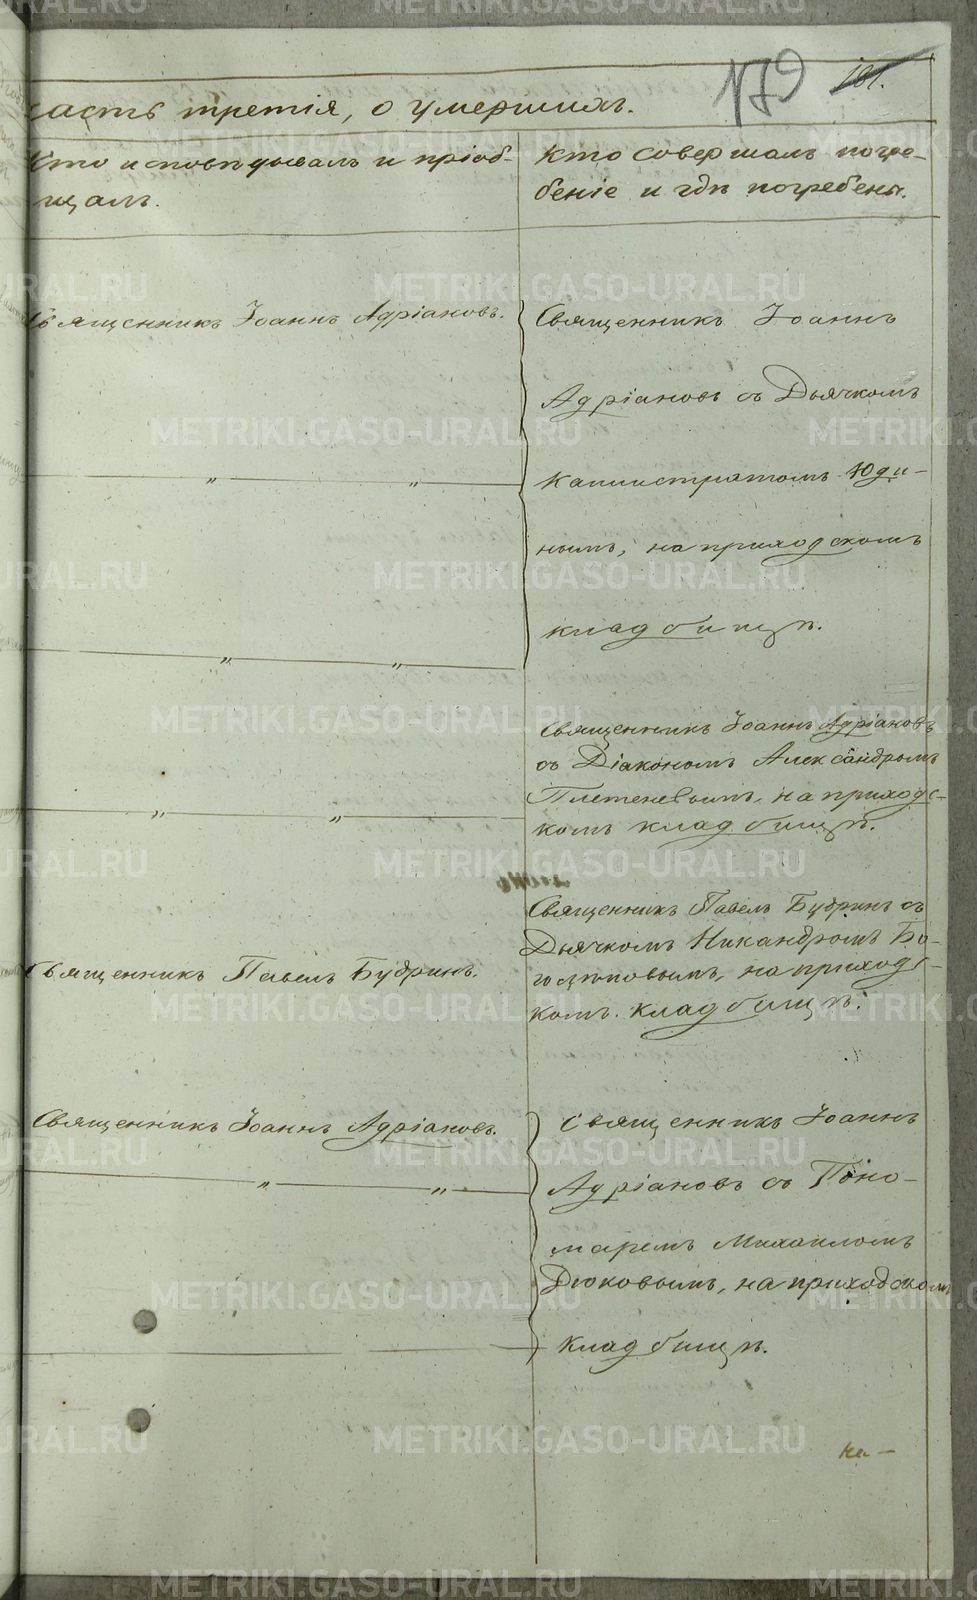 179 181.
часть третія, о умершихъ.
Кто исповѣдывалъ и пріоб-
щалъ.
Кто совершалъ погре-
беніе и гдѣ погребены.
Священникъ Іоаннъ Адріановъ.
„ „
„ „
Священникъ Іоаннъ
Адріановъ съ Дьячкомъ
Каллистратомъ Юди-
нымъ, на приходскомъ
кладбищѣ.
„ „
Священникъ Іоаннъ Адріановъ
съ Діакономъ Александромъ
Плетеневымъ, на приходс-
комъ кладбищѣ.
Священникъ Павелъ Будринъ.
Священникъ Павелъ Будринъ съ
Дьячкомъ Никандромъ Бо-
голѣповымъ, на приходс-
комъ кладбищѣ.
Священникъ Іоаннъ Адріановъ.
„ „
Священникъ Іоаннъ
Адріановъ съ Поно-
маремъ Михаиломъ
Дюковымъ, на приходскомъ
кладбищѣ.
на-
METRIKI.GASO-URAL.RU